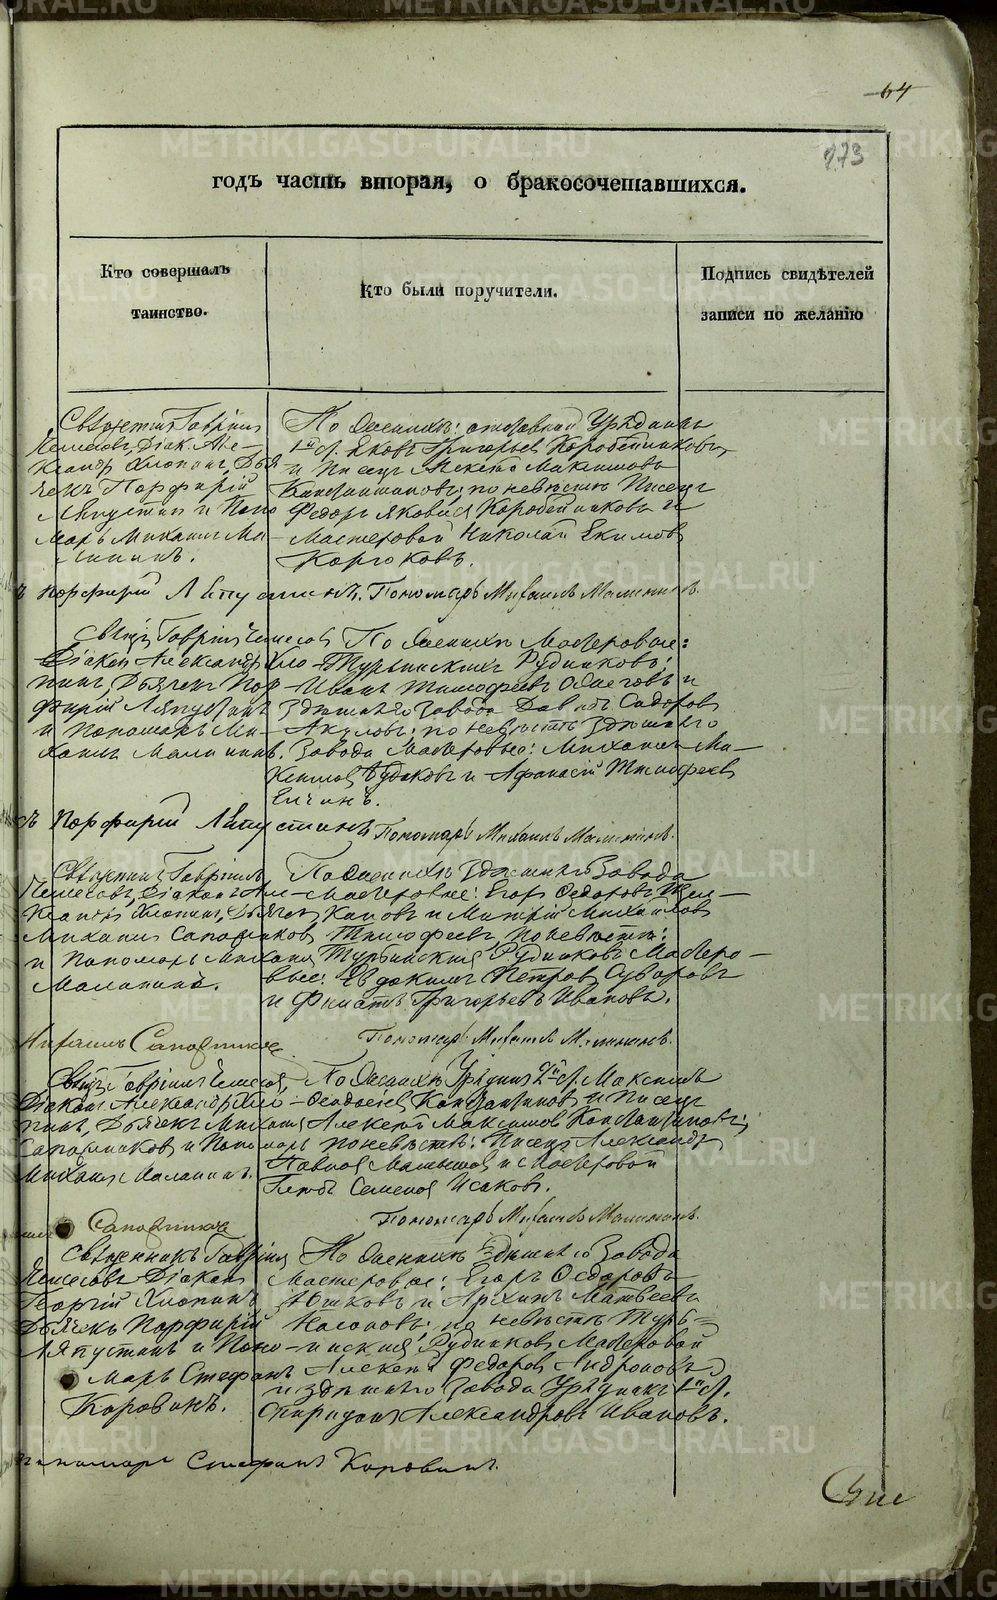 64
273
годъ часть вторая, о бракосочетавшихся.
Кто совершалъ
таинство.
Кто были поручители.
Подпись свидѣтелей
записи по желанію
Священникъ Гавріилъ
Діак. Але-
ксандръ Хлопинъ, Дья
чекъ Порфирій
Ляпустинъ и Поно
марь Михаилъ Ма-
лининъ.
По женихѣ: отставной Урядникъ
1й ст. Яковъ Григорьевъ Коробейниковъ
и Писецъ Алексѣй Максимовъ
Константиновъ; по невѣстѣ Писецъ
Федоръ Яковлевъ Коробейниковъ и
Мастеровой Николай Екимовъ
Коргоковъ.
Порфирий Ляпустинъ. Пономарь Михаилъ Малининъ.
Свящ. Гавріилъ
Діаконъ Александръ Хло-
пинъ, Дьячекъ Пор-
фирій Ляпустинъ
и Пономарь Ми-
хаилъ Малининъ.
По женихѣ Мастеровые:
Турьинскихъ Рудниковъ:
Иванъ Тимофеевъ и
здѣшняго завода Давидъ Сидоровъ
Акуловъ; по невѣстѣ здѣшняго
Завода Мастеровые: Михаилъ Ма-
ксимовъ Будаковъ и Афанасій Тимофеевъ
Елчинъ.
Порфирий Ляпустинъ Пономарь Михаилъ Малининъ.
Священникъ Гавріилъ
Діаконъ Але-
ксандръ Хлопинъ, Дьячек
Михаилъ Сапожников
и Пономарь Михаилъ
Малининъ.
По женихѣ здѣшняго Завода
Мастеровые: Егоръ Федоровъ
и Дмитрій Михайловъ
Тимофеевъ, по невѣстѣ:
Турьинскихъ Рудниковъ Мастеро-
вые: Евдокимъ Петровъ Суворовъ
и Филатъ Григорьевъ Ивановъ.
Михаилъ Сапожников Пономарь Михаилъ Малининъ.
Свящ. Гавріилъ
Діаконъ Александръ Хло-
пинъ, Дьячекъ Михаилъ
Сапожников и Поно
Михаилъ Малининъ.
По женихѣ Урядникъ 2й ст. Максимъ
Федосеевъ Константиновъ и Писецъ
Алексѣй Максимовъ Константиновъ;
по невѣстѣ: Писецъ Александръ
Павловъ и Мастеровой
Глебъ Семеновъ Исаковъ.
Сапожников Пономарь Михаилъ Малининъ.
Священникъ Гавріилъ
Діаконъ
Георгій Хлопинъ,
Дьячекъ Порфирій
Ляпустинъ и Поно-
марь Стефанъ
Коровинъ.
По женихѣ здѣшняго Завода
Мастеровые: Егоръ Федоровъ
Юшковъ и Архипъ Матвеевъ
Насоновъ; по невѣстѣ Турь-
инскихъ Рудниковъ Мастеровой
Алексѣй Федоровъ Андроновъ
и здѣшняго Завода Урядникъ 1й ст.
Спиридонъ Александровъ Ивановъ.
Пономарь Стефанъ Коровинъ.
METRIKI.GASO-URAL.RU